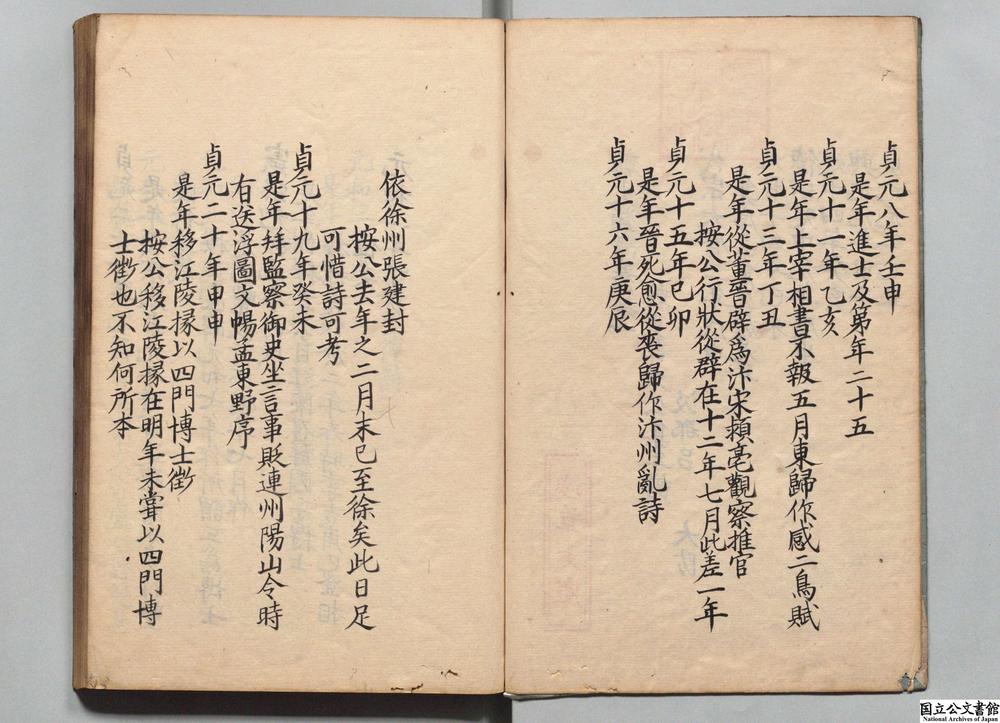 貞元八年壬申
是年進士及第年二十五
貞元十一年乙亥
是年上宰相書不報五月東歸作感二鳥賦
貞元十三年丁丑
是年從董晉辟為汴宋頴亳觀察推官
按公行狀從辟在十二年七月此差一年
貞元十五年己卯
是年晉死愈從喪歸作汴州亂詩
貞元十六年庚辰
依徐州張建封
按公去年之二月末已至徐矣此日足
可惜詩可考
貞元十九年癸未
是年拜監察御史坐言事貶連州陽山令時
有送浮圖文暢孟東野序
貞元二十年甲申
是年移江陵掾以四門博士徵
按公移江陵掾在明年未甞以四門博
士徵也不知何所本
国立公文書館
National Archives of Japan